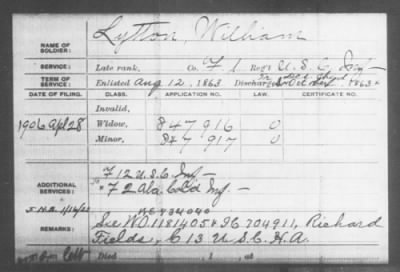 Lytton, William
NAME OF SOLDIER:
Late rank, Co. F 1 Regt U.S.C. Inf
TERM OF SERVICE: Enlisted Aug 12, 1863 Discharged 1863
DATE OF FILING. CLASS. APPLICATION NO. LAW. CERTIFICATE NO.
Invalid,
1906 Apl 28 Widow, 847916 0
Minor, 847917 0
ADDITIONAL SERVICES: F 12 U.S.C. Inf
F 2 Ala. Cld Inf
REMARKS: See WO 1181405 & IC 704911, Richard
Fields, C 13 U.S.C.H.A.
Died , 1 at